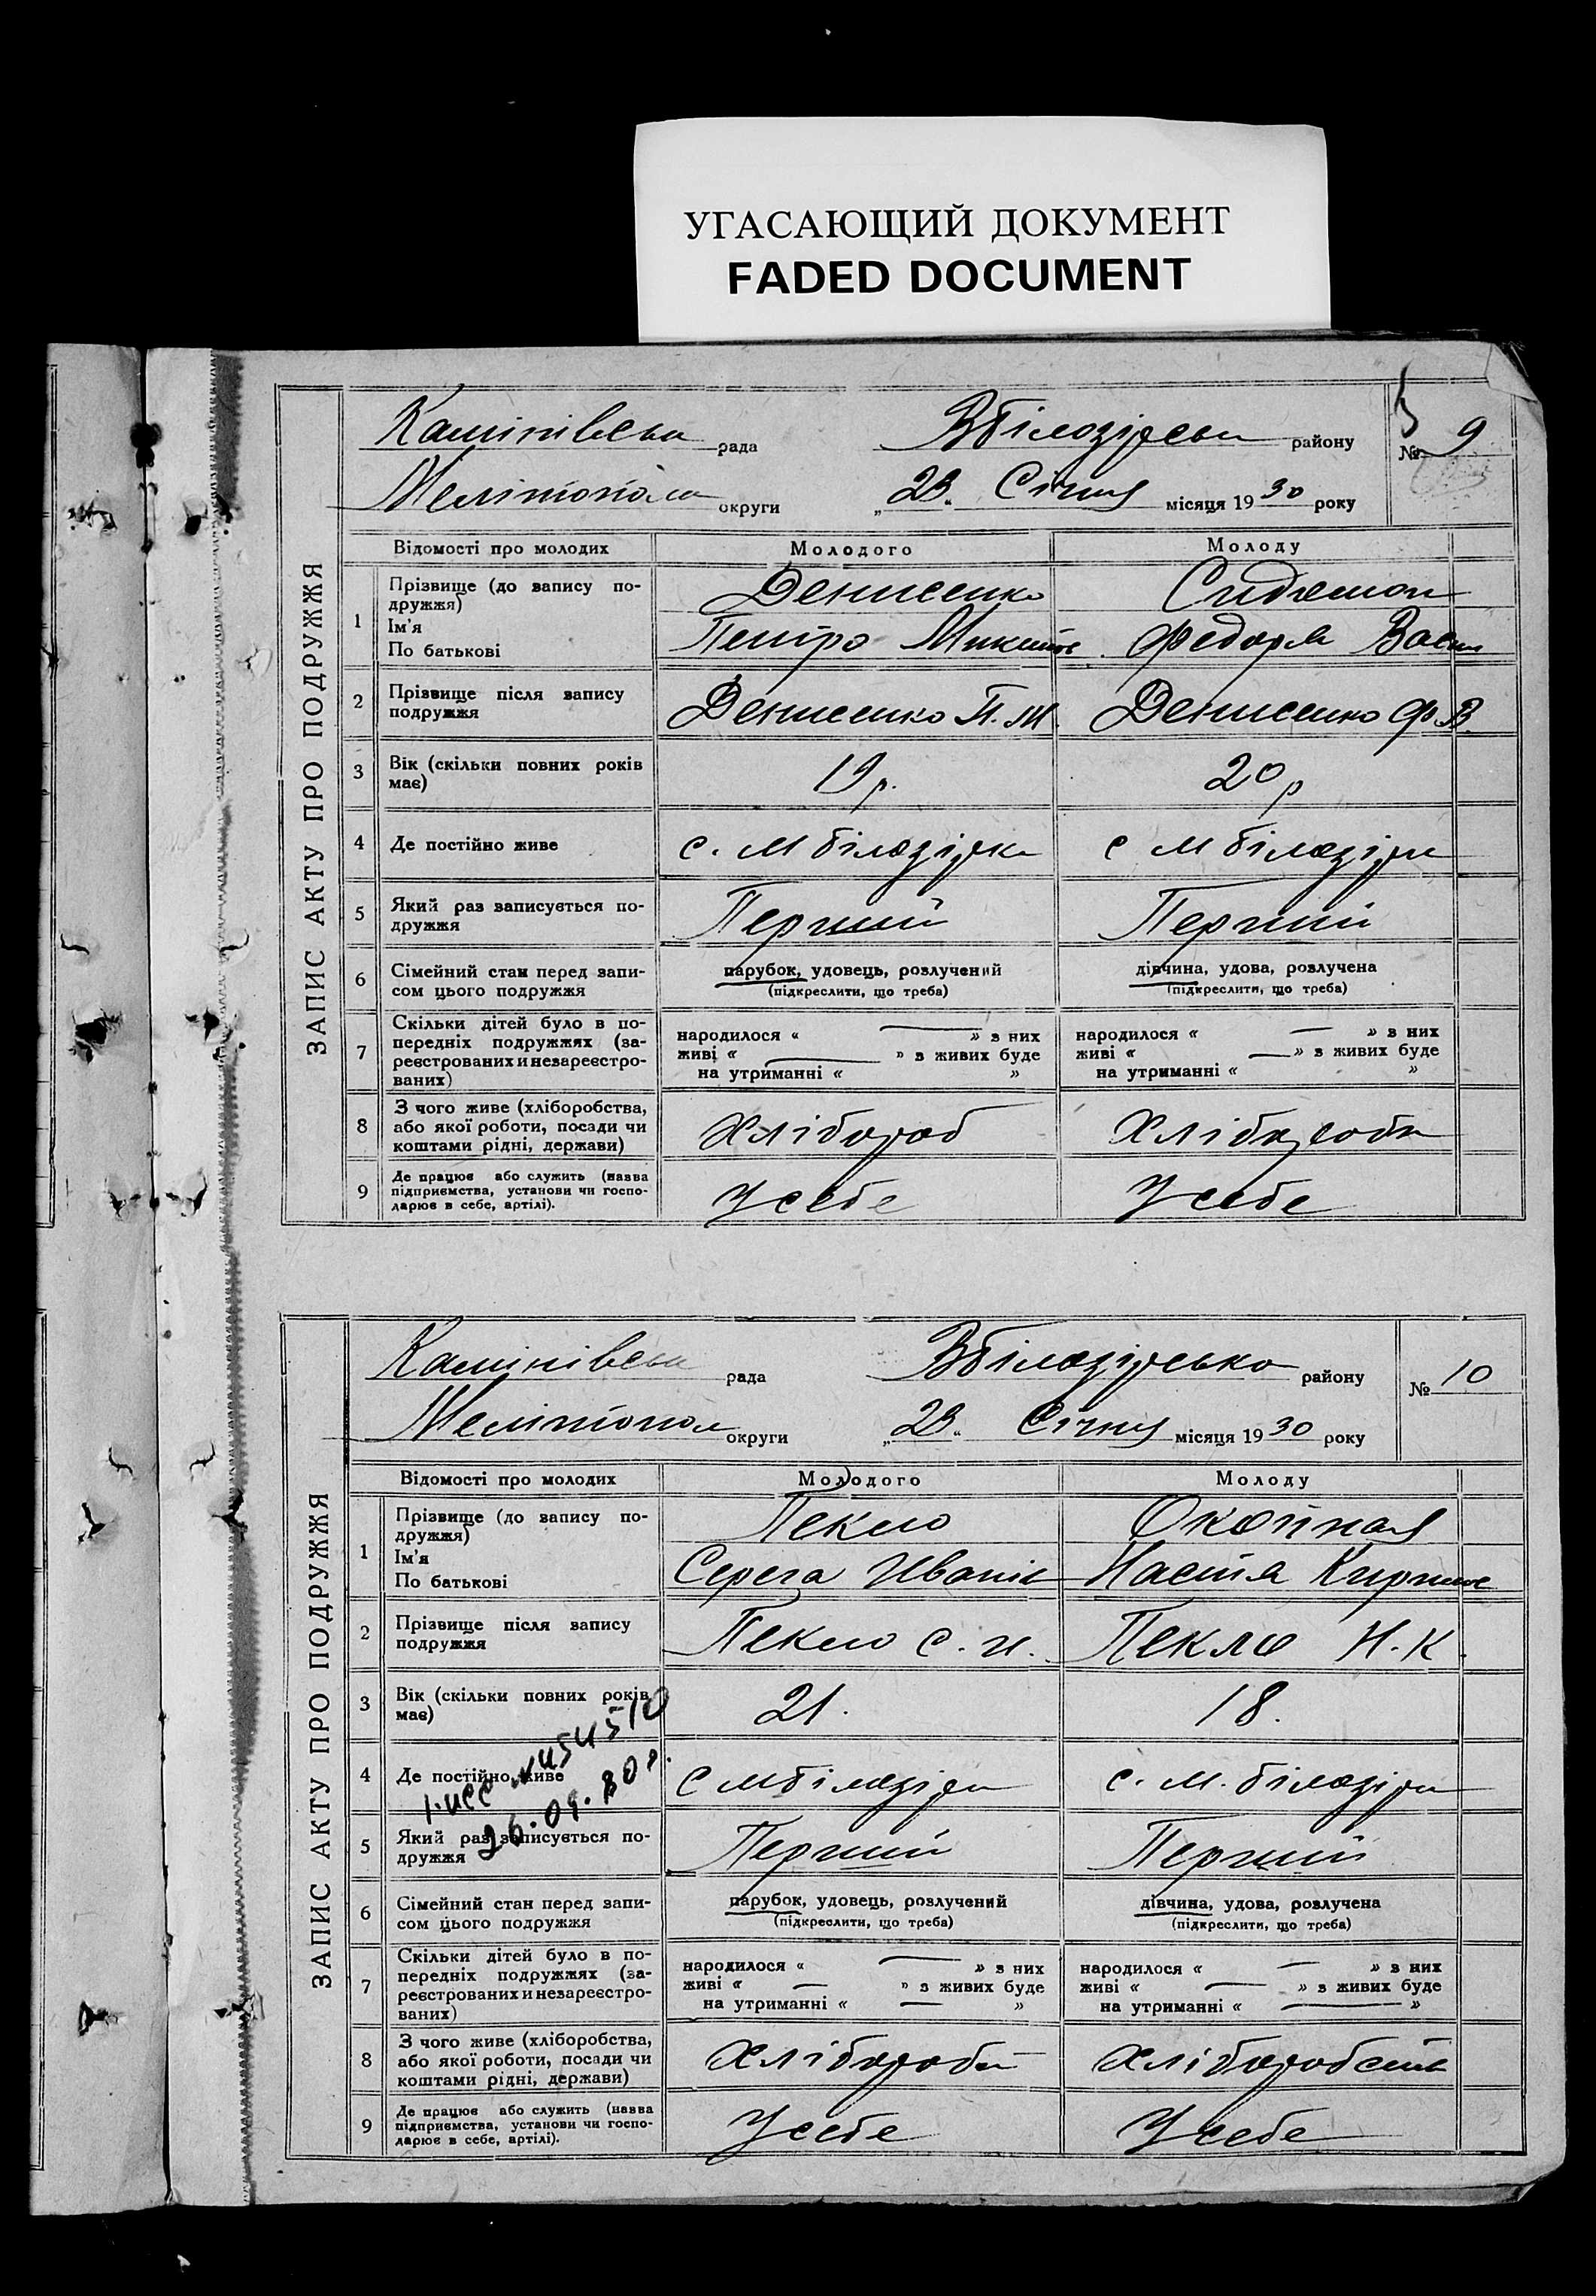 УГАСАЮЩИЙ ДОКУМЕНТ
FADED DOCUMENT
ЗАПИС АКТУ ПРО ПОДРУЖЖЯ
рада Вбілозірськ району № 9
Мелітополь округи „23“ Січня місяця 1930 року
Відомості про молодих Молодого Молоду
1 Прізвище (до запису по-
дружжя) Денисенко
Ім'я
По батькові Петро Федора
2 Прізвище після запису
подружжя Денисенко П. М. Денисенко Ф. В.
3 Вік (скільки повних років
має) 19 р. 20 р
4 Де постійно живе с. М білозірка с М білозірка
5 Який раз записується по-
дружжя Перший Перший
6 Сімейний стан перед запи-
сом цього подружжя парубок, удовець, розлучений дівчина, удова, розлучена
(підкреслити, що треба) (підкреслити, що треба)
7 Скільки дітей було в по-
передніх подружжях (за-
реєстрованих и незареєстро-
ваних)
народилося « — » з них народилося « — » з них
живі « — » з живих буде живі « — » з живих буде
на утриманні « » на утриманні « »
8 З чого живе (хліборобства,
або якої роботи, посади чи
коштами рідні, держави) Хлібороб Хлібороб
9 Де працює або служить (назва
підприємства, установи чи госпо-
дарює в себе, артілі). У себе У себе
ЗАПИС АКТУ ПРО ПОДРУЖЖЯ
рада Вбілозірсько району № 10
Мелітопол округи „23“ Січня місяця 1930 року
Відомості про молодих Молодого Молоду
1 Прізвище (до запису по-
дружжя) Пекло Окопная
Ім'я
По батькові Серега Иванів Настя
2 Прізвище після запису
подружжя Пекло С. И. Пекло Н. К.
3 Вік (скільки повних років
має) 21. 18.
4 Де постійно живе с М білозірка с. М. білозірка
26.09.80р.
5 Який раз записується по-
дружжя Перший Перший
6 Сімейний стан перед запи-
сом цього подружжя парубок, удовець, розлучений дівчина, удова, розлучена
(підкреслити, що треба) (підкреслити, що треба)
7 Скільки дітей було в по-
передніх подружжях (за-
реєстрованих и незареєстро-
ваних)
народилося « — » з них народилося « — » з них
живі « — » з живих буде живі « — » з живих буде
на утриманні « — » на утриманні « — »
8 З чого живе (хліборобства,
або якої роботи, посади чи
коштами рідні, держави) Хлібороб Хліборобств
9 Де працює або служить (назва
підприємства, установи чи госпо-
дарює в себе, артілі). У себе У себе